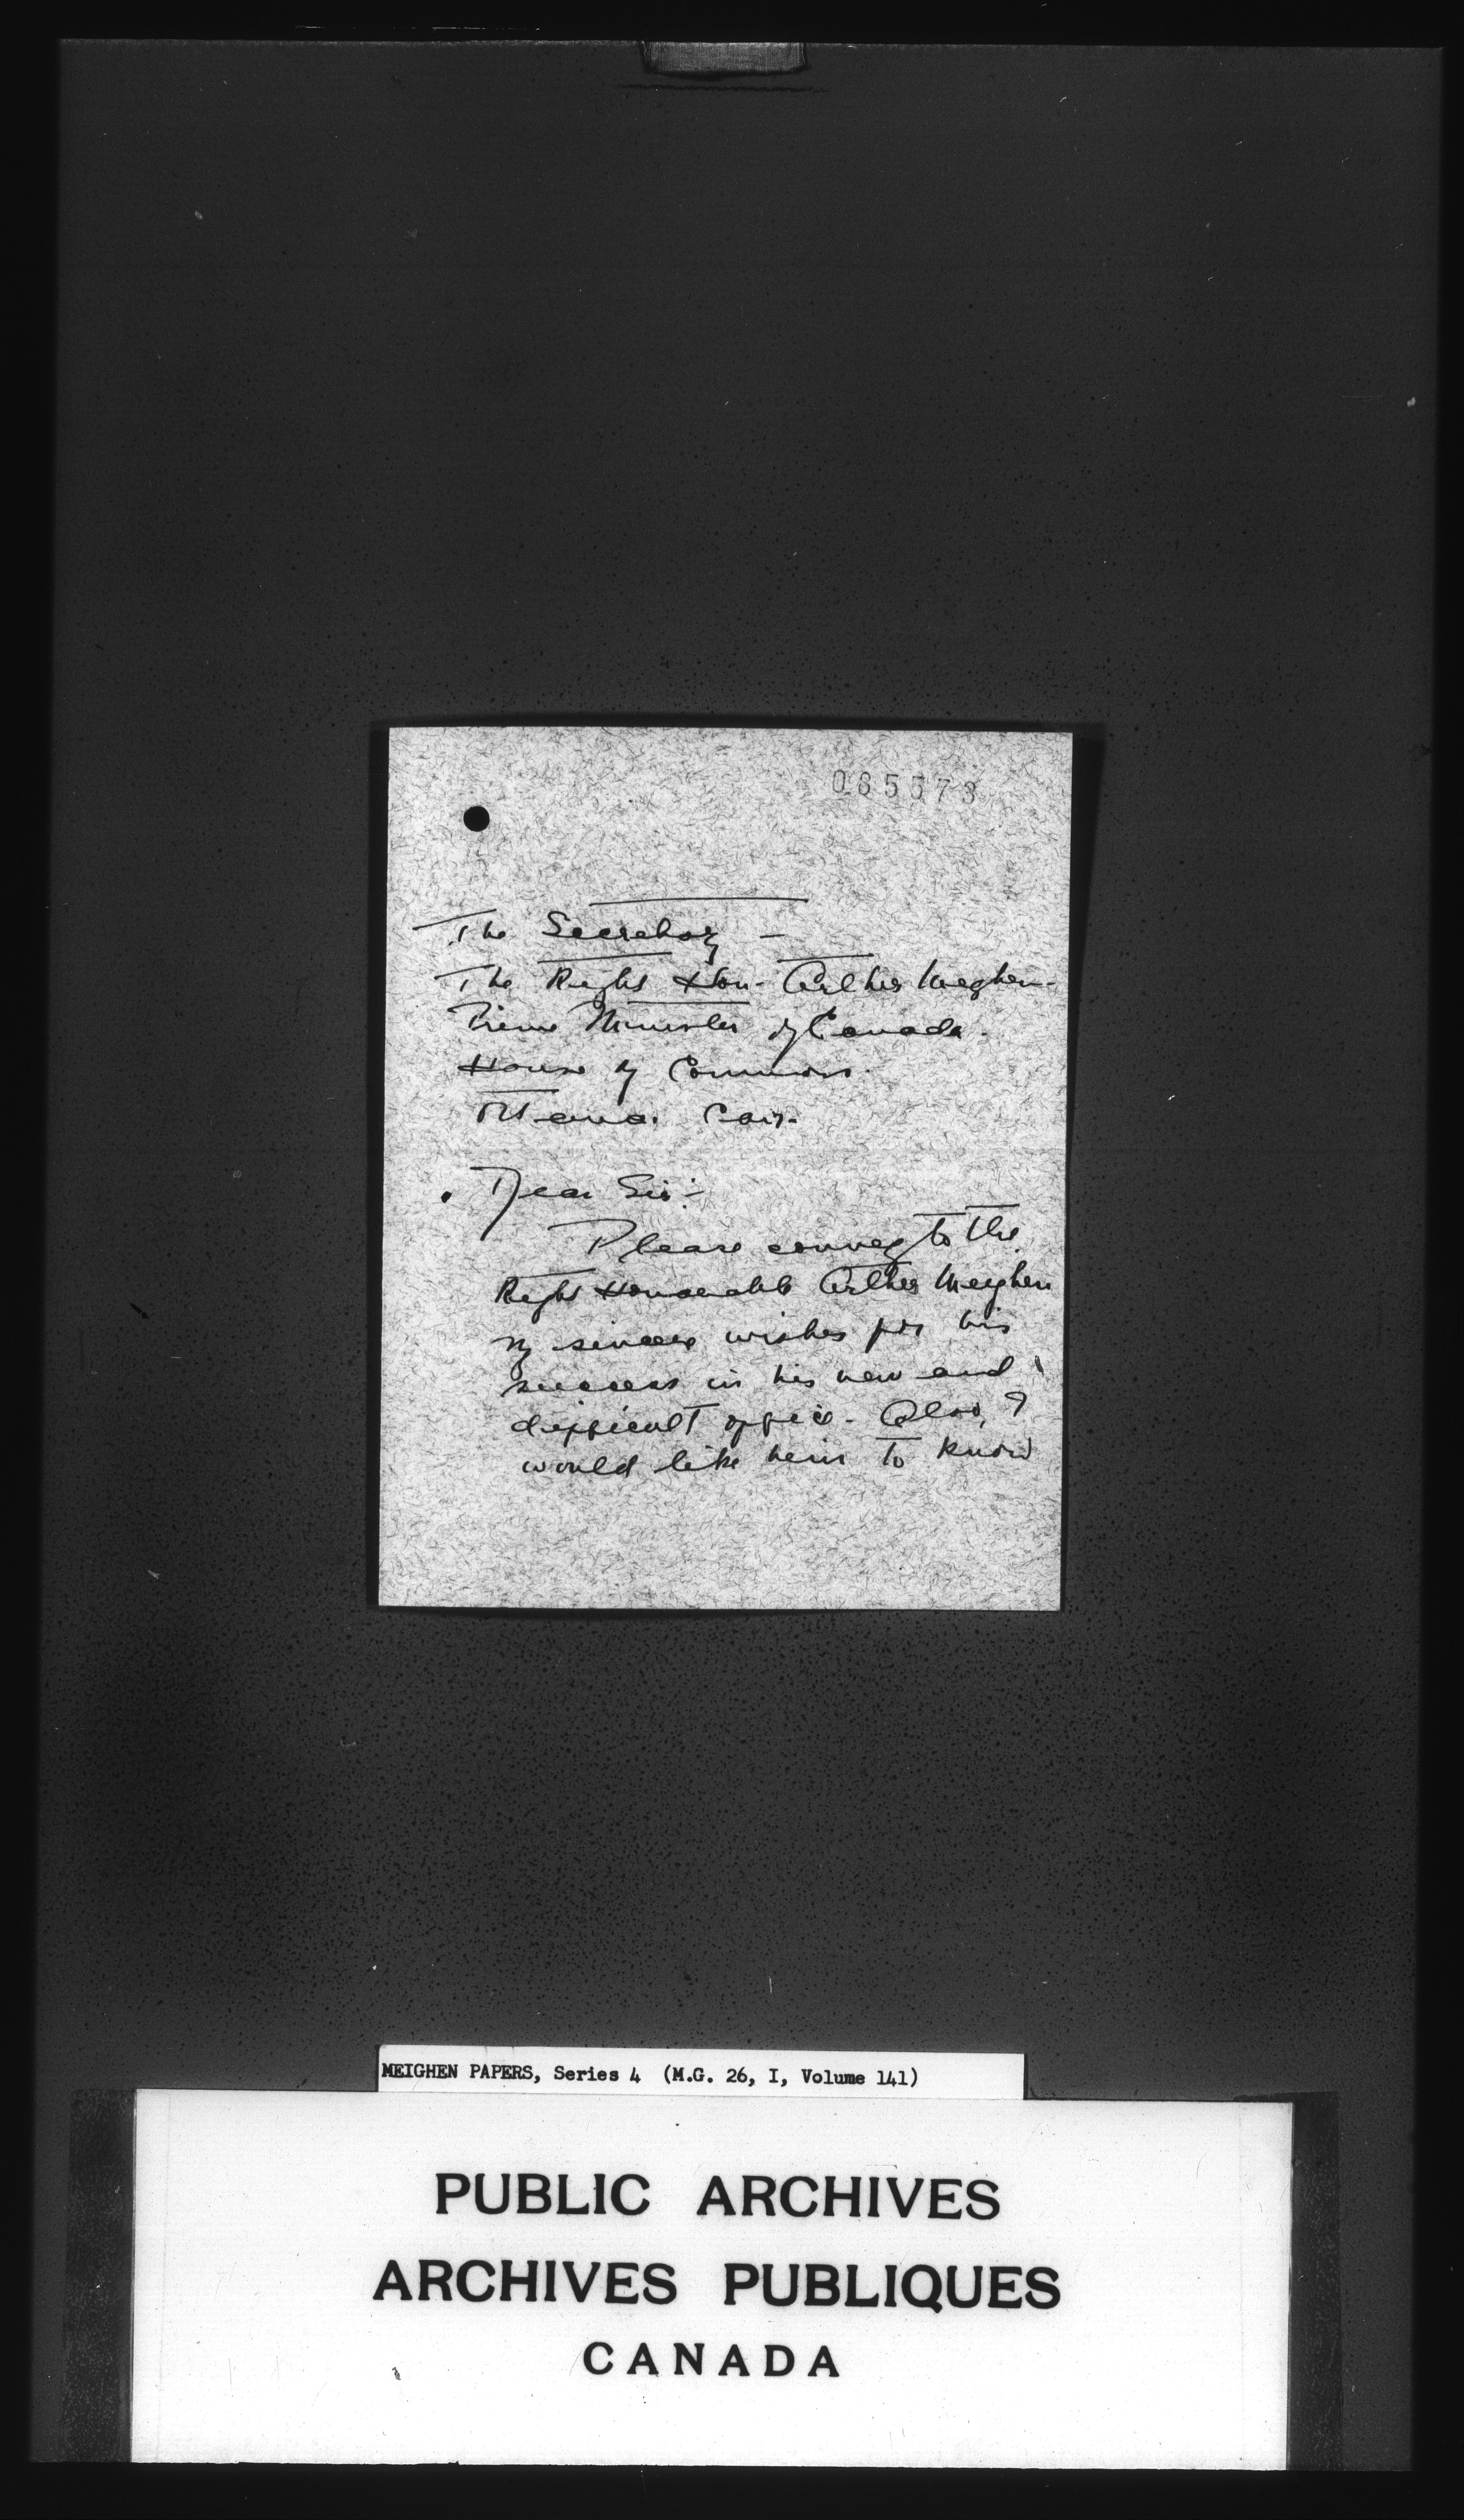 085573
The Secretary –
The Right Hon. Arthur Meighen
Prime Minister of Canada.
House of Commons.
Ottawa. Can.
Dear Sir:–
Please convey to the
Right Honourable Arthur Meighen
my sincere wishes for his
success in his new and
difficult office. Also, I
would like him to know
MEIGHEN PAPERS, Series 4 (M.G. 26, I, Volume 141)
PUBLIC ARCHIVES
ARCHIVES PUBLIQUES
CANADA